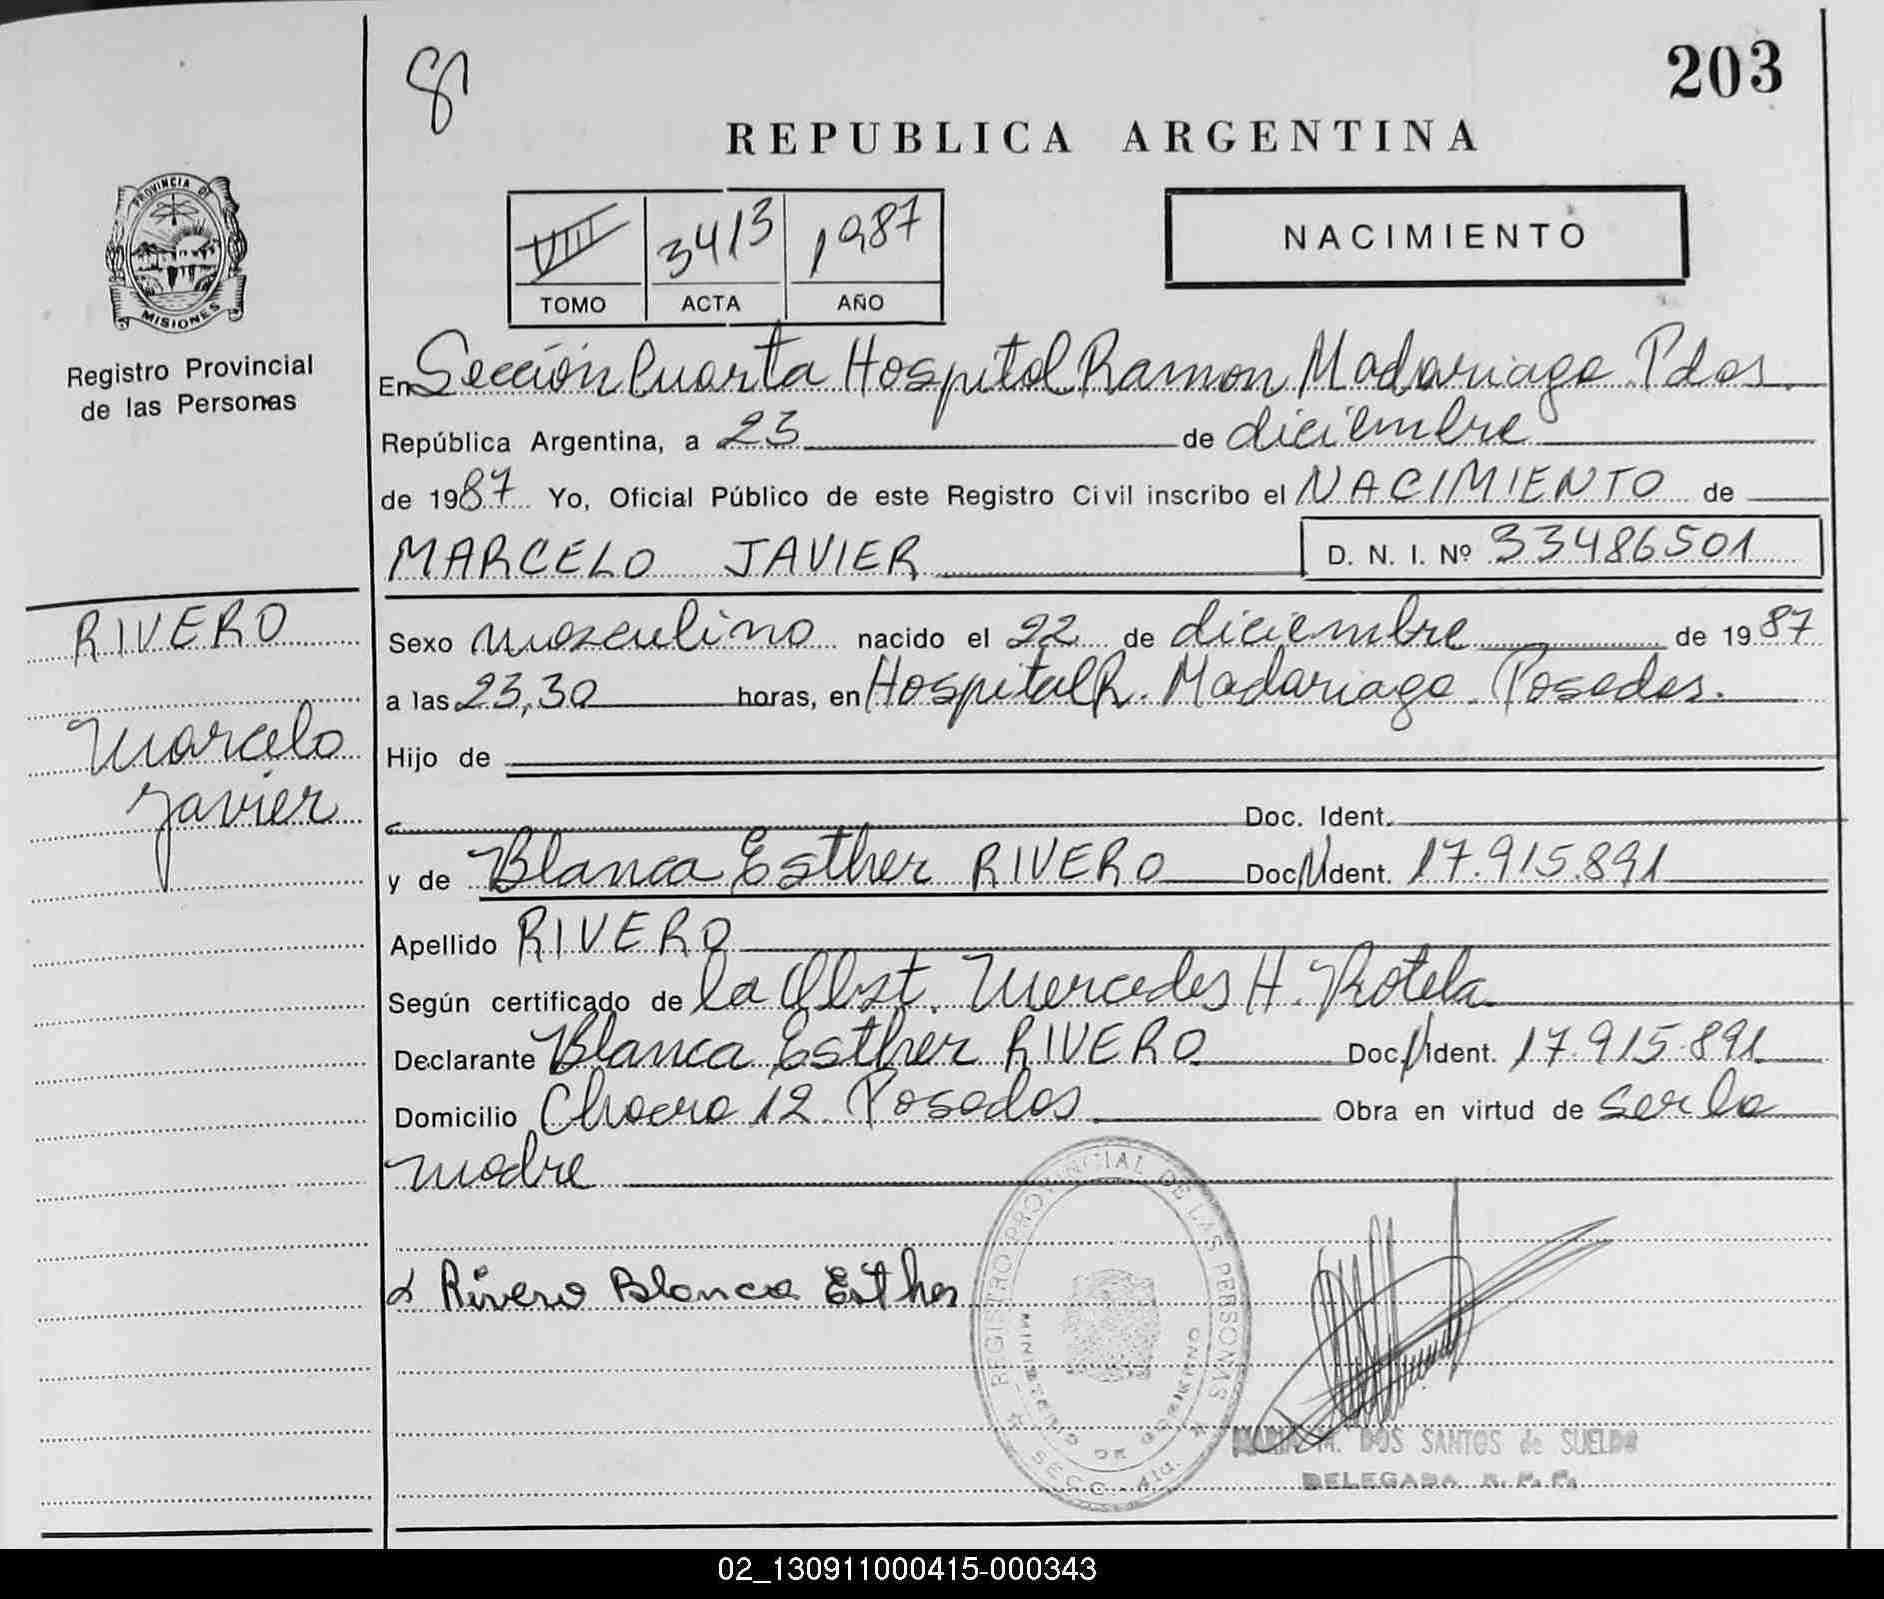 203
REPUBLICA ARGENTINA
PROVINCIA DE
MISIONES
Registro Provincial
de las Personas
VIII 3413 1987
TOMO ACTA AÑO
NACIMIENTO
En Sección Cuarta Hospital Ramon Madariaga Pdas.
República Argentina, a 23 de diciembre
de 1987 Yo, Oficial Público de este Registro Civil inscribo el NACIMIENTO de
MARCELO JAVIER D. N. I. Nº 33486501
RIVERO
Marcelo
Javier
Sexo masculino nacido el 22 de diciembre de 1987
a las 23,30 horas, en Hospital R. Madariaga Posadas.
Hijo de
Doc. Ident.
y de Blanca Esther RIVERO Doc. Ident. 17.915.891
Apellido RIVERO
Según certificado de la Obst. Mercedes H. Rotela
Declarante Blanca Esther RIVERO Doc. Ident. 17.915.891
Domicilio Chacra 12 Posadas Obra en virtud de ser la
madre
Rivero Blanca Esther
REGISTRO PROVINCIAL DE LAS PERSONAS
MINISTERIO DE GOBIERNO
SECC. 4ta.
MARIA M. DOS SANTOS de SUELDO
DELEGADA R. P. P.
02_130911000415-000343